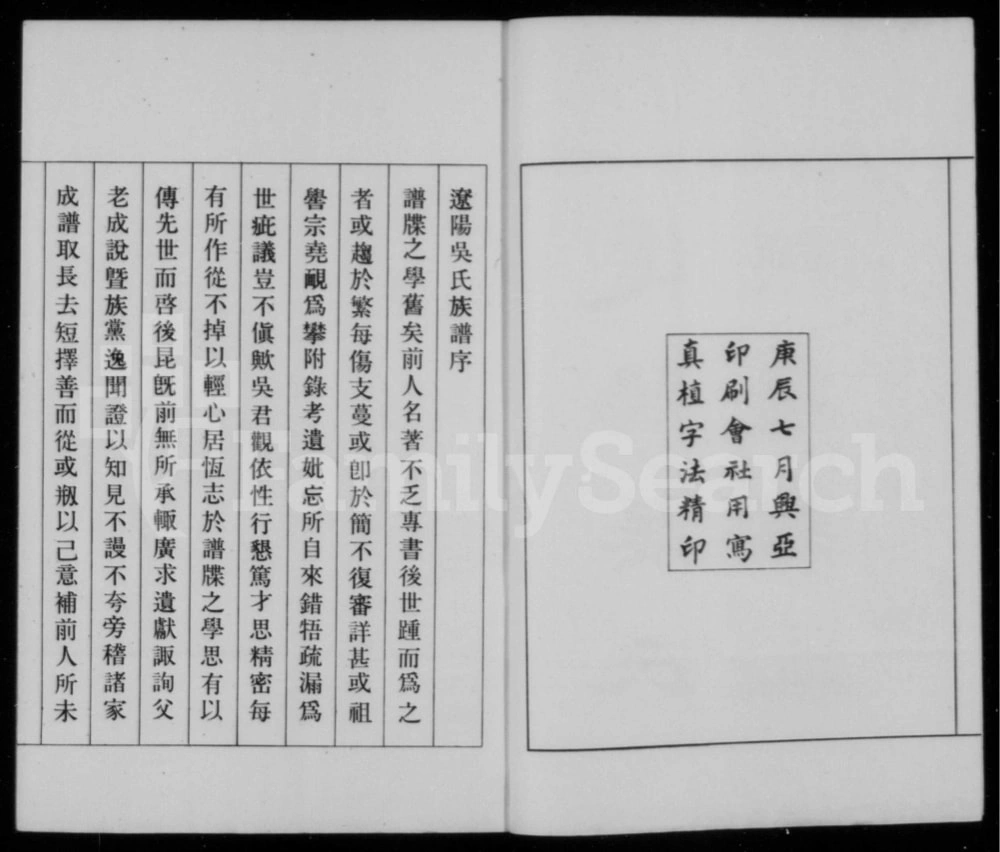 庚辰七月興亞
印刷會社用寫
真植字法精印
遼陽吳氏族譜序
譜牒之學舊矣前人名著不乏專書後世踵而爲之
者或趨於繁每傷支蔓或卽於簡不復審詳甚或祖
嚳宗堯覼爲攀附錄考遺妣忘所自來錯牾疏漏爲
世疵議豈不愼歟吳君觀依性行懇篤才思精密每
有所作從不掉以輕心居恆志於譜牒之學思有以
傳先世而啓後昆旣前無所承輙廣求遺獻諏詢父
老成說曁族黨逸聞證以知見不謾不夸旁稽諸家
成譜取長去短擇善而從或剏以己意補前人所未
FamilySearch